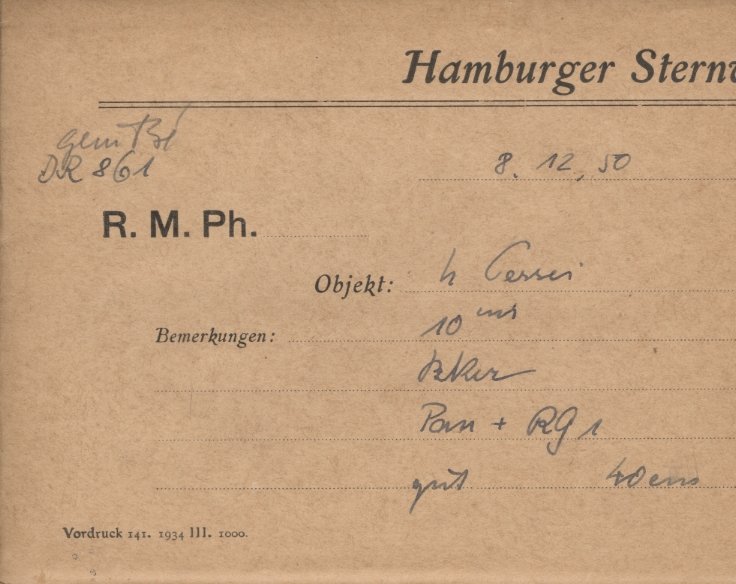 Hamburger Sternw
gem Bé
DR 861
8. 12. 50
R. M. Ph.
Objekt: h Persei
Bemerkungen: 10 ms
Pan + RG 1
gut 40 cm
Vordruck 141. 1934 III. 1000.